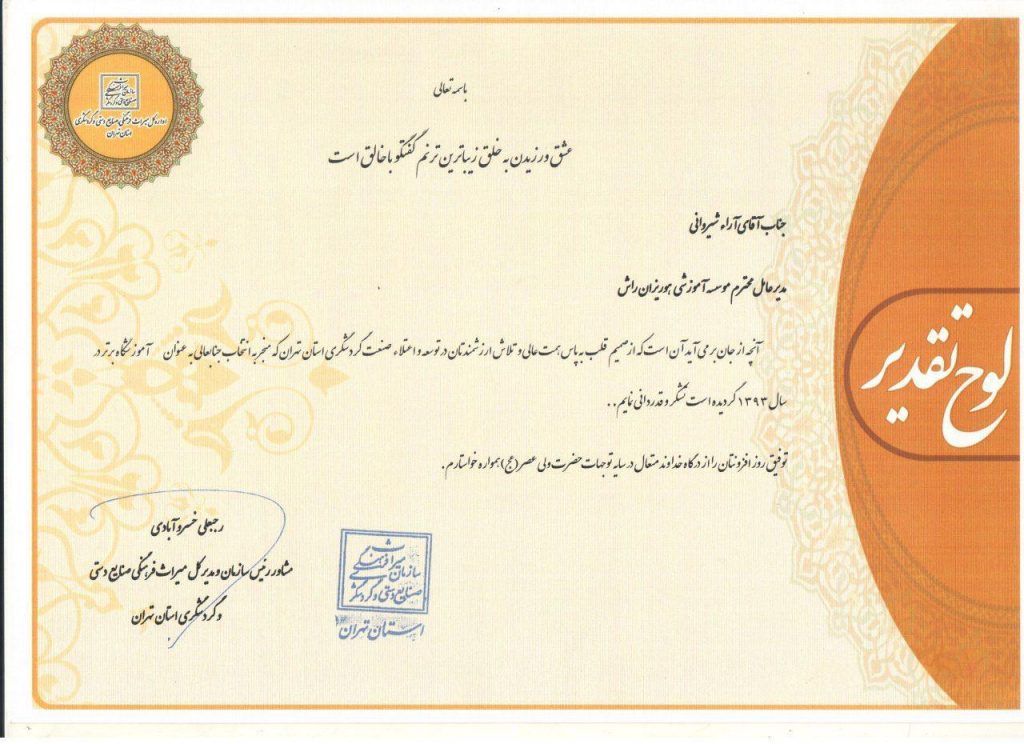 باسمه تعالی
عشق ورزیدن به خلق زیباترین ترنم گفتگو با خالق است
جناب آقای آراء شیروانی
مدیرعامل محترم موسسه آموزشی هوریزان راش
آنچه از جان برمی آید آن است که از صمیم قلب به پاس همت عالی و تلاش ارزشمندتان در توسعه و اعتلاء صنعت گردشگری استان تهران که منجر به انتخاب جنابعالی به عنوان آموزشگاه برتر در
سال ۱۳۹۳ گردیده است تشکر و قدردانی نمایم..
توفیق روز افزونتان را از درگاه خداوند متعال در سایه توجهات حضرت ولی عصر(عج) همواره خواستارم.
رجبعلی خسروآبادی
مشاور رئیس سازمان و مدیرکل میراث فرهنگی صنایع دستی
و گردشگری استان تهران
سازمان میراث فرهنگی
صنایع دستی و گردشگری
استان تهران
لوح تقدیر
سازمان میراث فرهنگی
صنایع دستی و گردشگری
اداره کل میراث فرهنگی صنایع دستی و گردشگری
استان تهران